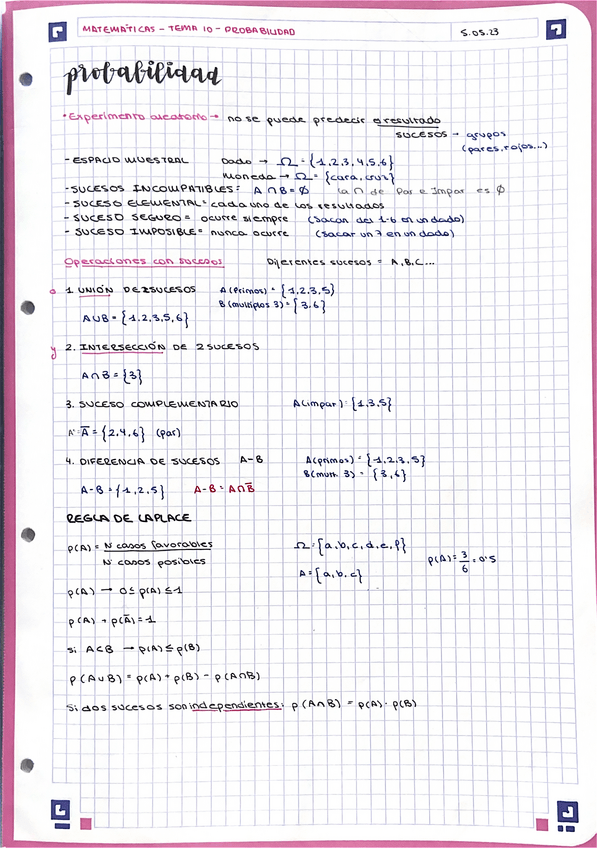 MATEMÁTICAS - TEMA 10 - PROBABILIDAD
5.05.23
probabilidad
*Experimento aleatorio → no se puede predecir el resultado
SUCESOS → grupos
(pares, rojos...)
- ESPACIO MUESTRAL Dado → Ω = {1,2,3,4,5,6}
Moneda → Ω = {cara, cruz}
- SUCESOS INCOMPATIBLES: A ∩ B = Ø la ∩ de Par e Impar es Ø
- SUCESO ELEMENTAL = cada uno de los resultados
- SUCESO SEGURO = ocurre siempre (Sacar del 1-6 en un dado)
- SUCESO IMPOSIBLE = nunca ocurre (sacar un 7 en un dado)
Operaciones con sucesos Diferentes sucesos = A, B, C...
o 1. UNIÓN DE 2 SUCESOS A (Primos) = {1,2,3,5}
B (multiplos 3) = {3,6}
A∪B = {1,2,3,5,6}
y 2. INTERSECCIÓN DE 2 SUCESOS
A∩B = {3}
3. SUCESO COMPLEMENTARIO A (impar) = {1,3,5}
A' = Ā = {2,4,6} (par)
4. DIFERENCIA DE SUCESOS A-B A (primos) = {1,2,3,5}
B (mult. 3) = {3,6}
A-B = {1,2,5} A-B = A∩B̄
REGLA DE LAPLACE
p(A) = Nº casos favorables / Nº casos posibles
Ω = {a,b,c,d,e,f}
A = {a,b,c}
p(A) = 3/6 = 0'5
p(A) → 0 ≤ p(A) ≤ 1
p(A) + p(Ā) = 1
si A⊂B → p(A) ≤ p(B)
p(A∪B) = p(A) + p(B) - p(A∩B)
Si dos sucesos son independientes: p(A∩B) = p(A) · p(B)